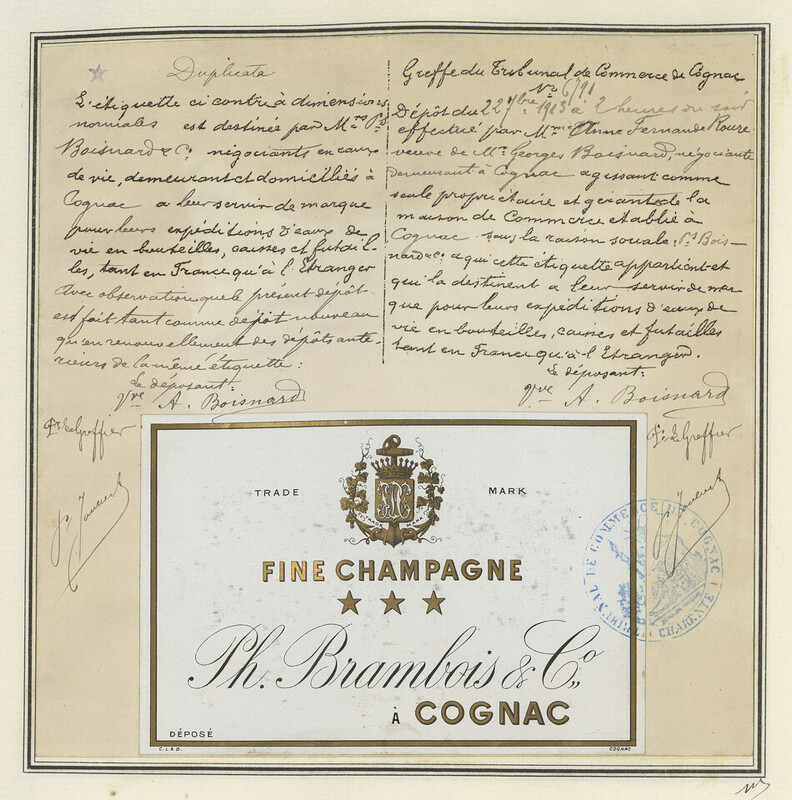 Duplicata
L'étiquette ci contre à dimensions
normales est destinée par Mrs Ps
Boisnard & Co négociants en eaux
de vie, demeurant et domiciliés à
Cognac a leur servir de marque
pour leurs expéditions d'eaux de
vie en bouteilles, caisses et futail-
les, tant en France qu'à l'Etranger
Avec observation que le présent dépôt
est fait tant comme dépôt nouveau
qu'en renouvellement des dépôts anté-
rieurs de la même étiquette :
Le déposant :
Vve A. Boisnard
Le Greffier
Greffe du Tribunal de Commerce de Cognac
No 6191
Dépôt du 22 7bre 1923 à 2 heures du soir
effectué par Mme Anne Fernande Roure
veuve de Mr Georges Boisnard, négociante
demeurant à Cognac agissant comme
seule propriétaire et gérante de la
maison de Commerce etablie à
Cognac sous la raison sociale. Ps Bois-
nard & Co a qui cette étiquette appartient et
qui la destinent a leur servir de mar
que pour leurs expéditions d'eaux de
vie en bouteilles, caisses et futailles
tant en France qu'à l'Etranger.
Le déposant :
Vve A. Boisnard
Le Greffier
TRADE MARK
FINE CHAMPAGNE
Ph. Brambois & Co.,
À COGNAC
DÉPOSÉ
C. L & D. COGNAC
TRIBUNAL DE COMMERCE DE COGNAC
CHARENTE